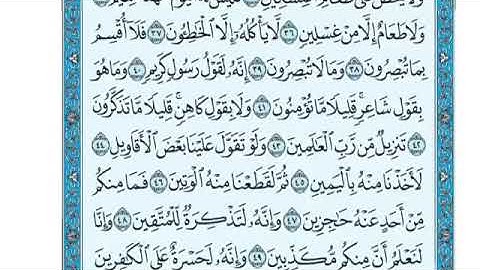 وَلَا طَعَامٌ إِلَّا مِنْ غِسْلِينٍ ٣٦ لَّا يَأْكُلُهُۥٓ إِلَّا ٱلْخَٰطِـُٔونَ ٣٧ فَلَآ أُقْسِمُ
بِمَا تُبْصِرُونَ ٣٨ وَمَا لَا تُبْصِرُونَ ٣٩ إِنَّهُۥ لَقَوْلُ رَسُولٍ كَرِيمٍ ٤٠ وَمَا هُوَ
بِقَوْلِ شَاعِرٍ ۚ قَلِيلًا مَّا تُؤْمِنُونَ ٤١ وَلَا بِقَوْلِ كَاهِنٍ ۚ قَلِيلًا مَّا تَذَكَّرُونَ
٤٢ تَنزِيلٌ مِّن رَّبِّ ٱلْعَٰلَمِينَ ٤٣ وَلَوْ تَقَوَّلَ عَلَيْنَا بَعْضَ ٱلْأَقَاوِيلِ ٤٤
لَأَخَذْنَا مِنْهُ بِٱلْيَمِينِ ٤٥ ثُمَّ لَقَطَعْنَا مِنْهُ ٱلْوَتِينَ ٤٦ فَمَا مِنكُم
مِّنْ أَحَدٍ عَنْهُ حَٰجِزِينَ ٤٧ وَإِنَّهُۥ لَتَذْكِرَةٌ لِّلْمُتَّقِينَ ٤٨ وَإِنَّا
لَنَعْلَمُ أَنَّ مِنكُم مُّكَذِّبِينَ ٤٩ وَإِنَّهُۥ لَحَسْرَةٌ عَلَى ٱلْكَٰفِرِينَ